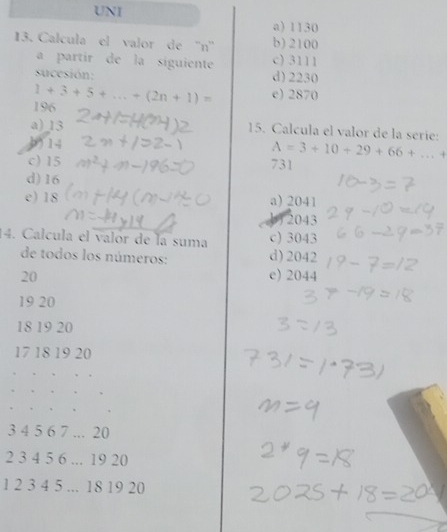 UNI
13. Calcula el valor de "n"
a partir de la siguiente
sucesión:
1 + 3 + 5 + ... + (2n + 1) =
196
a) 13
b) 14
c) 15
d) 16
e) 18
2n + 1 = 2 - 1
n² + n - 196 = 0
14. Calcula el valor de la suma
de todos los números:
20
19 20
18 19 20
17 18 19 20
. . . . .
. . . . .
. . . . .
3 4 5 6 7 ... 20
2 3 4 5 6 ... 19 20
1 2 3 4 5 ... 18 19 20
a) 1130
b) 2100
c) 3111
d) 2230
e) 2870
15. Calcula el valor de la serie:
A = 3 + 10 + 29 + 66 + ... +
731
10 - 3 = 7
a) 2041
b) 2043
c) 3043
d) 2042
e) 2044
29 - 10 = 19
66 - 29 = 37
19 - 7 = 12
37 - 19 = 18
3 = 13
731 = 1 · 731
n = 9
2 * 9 = 18
2025 + 18 = 204